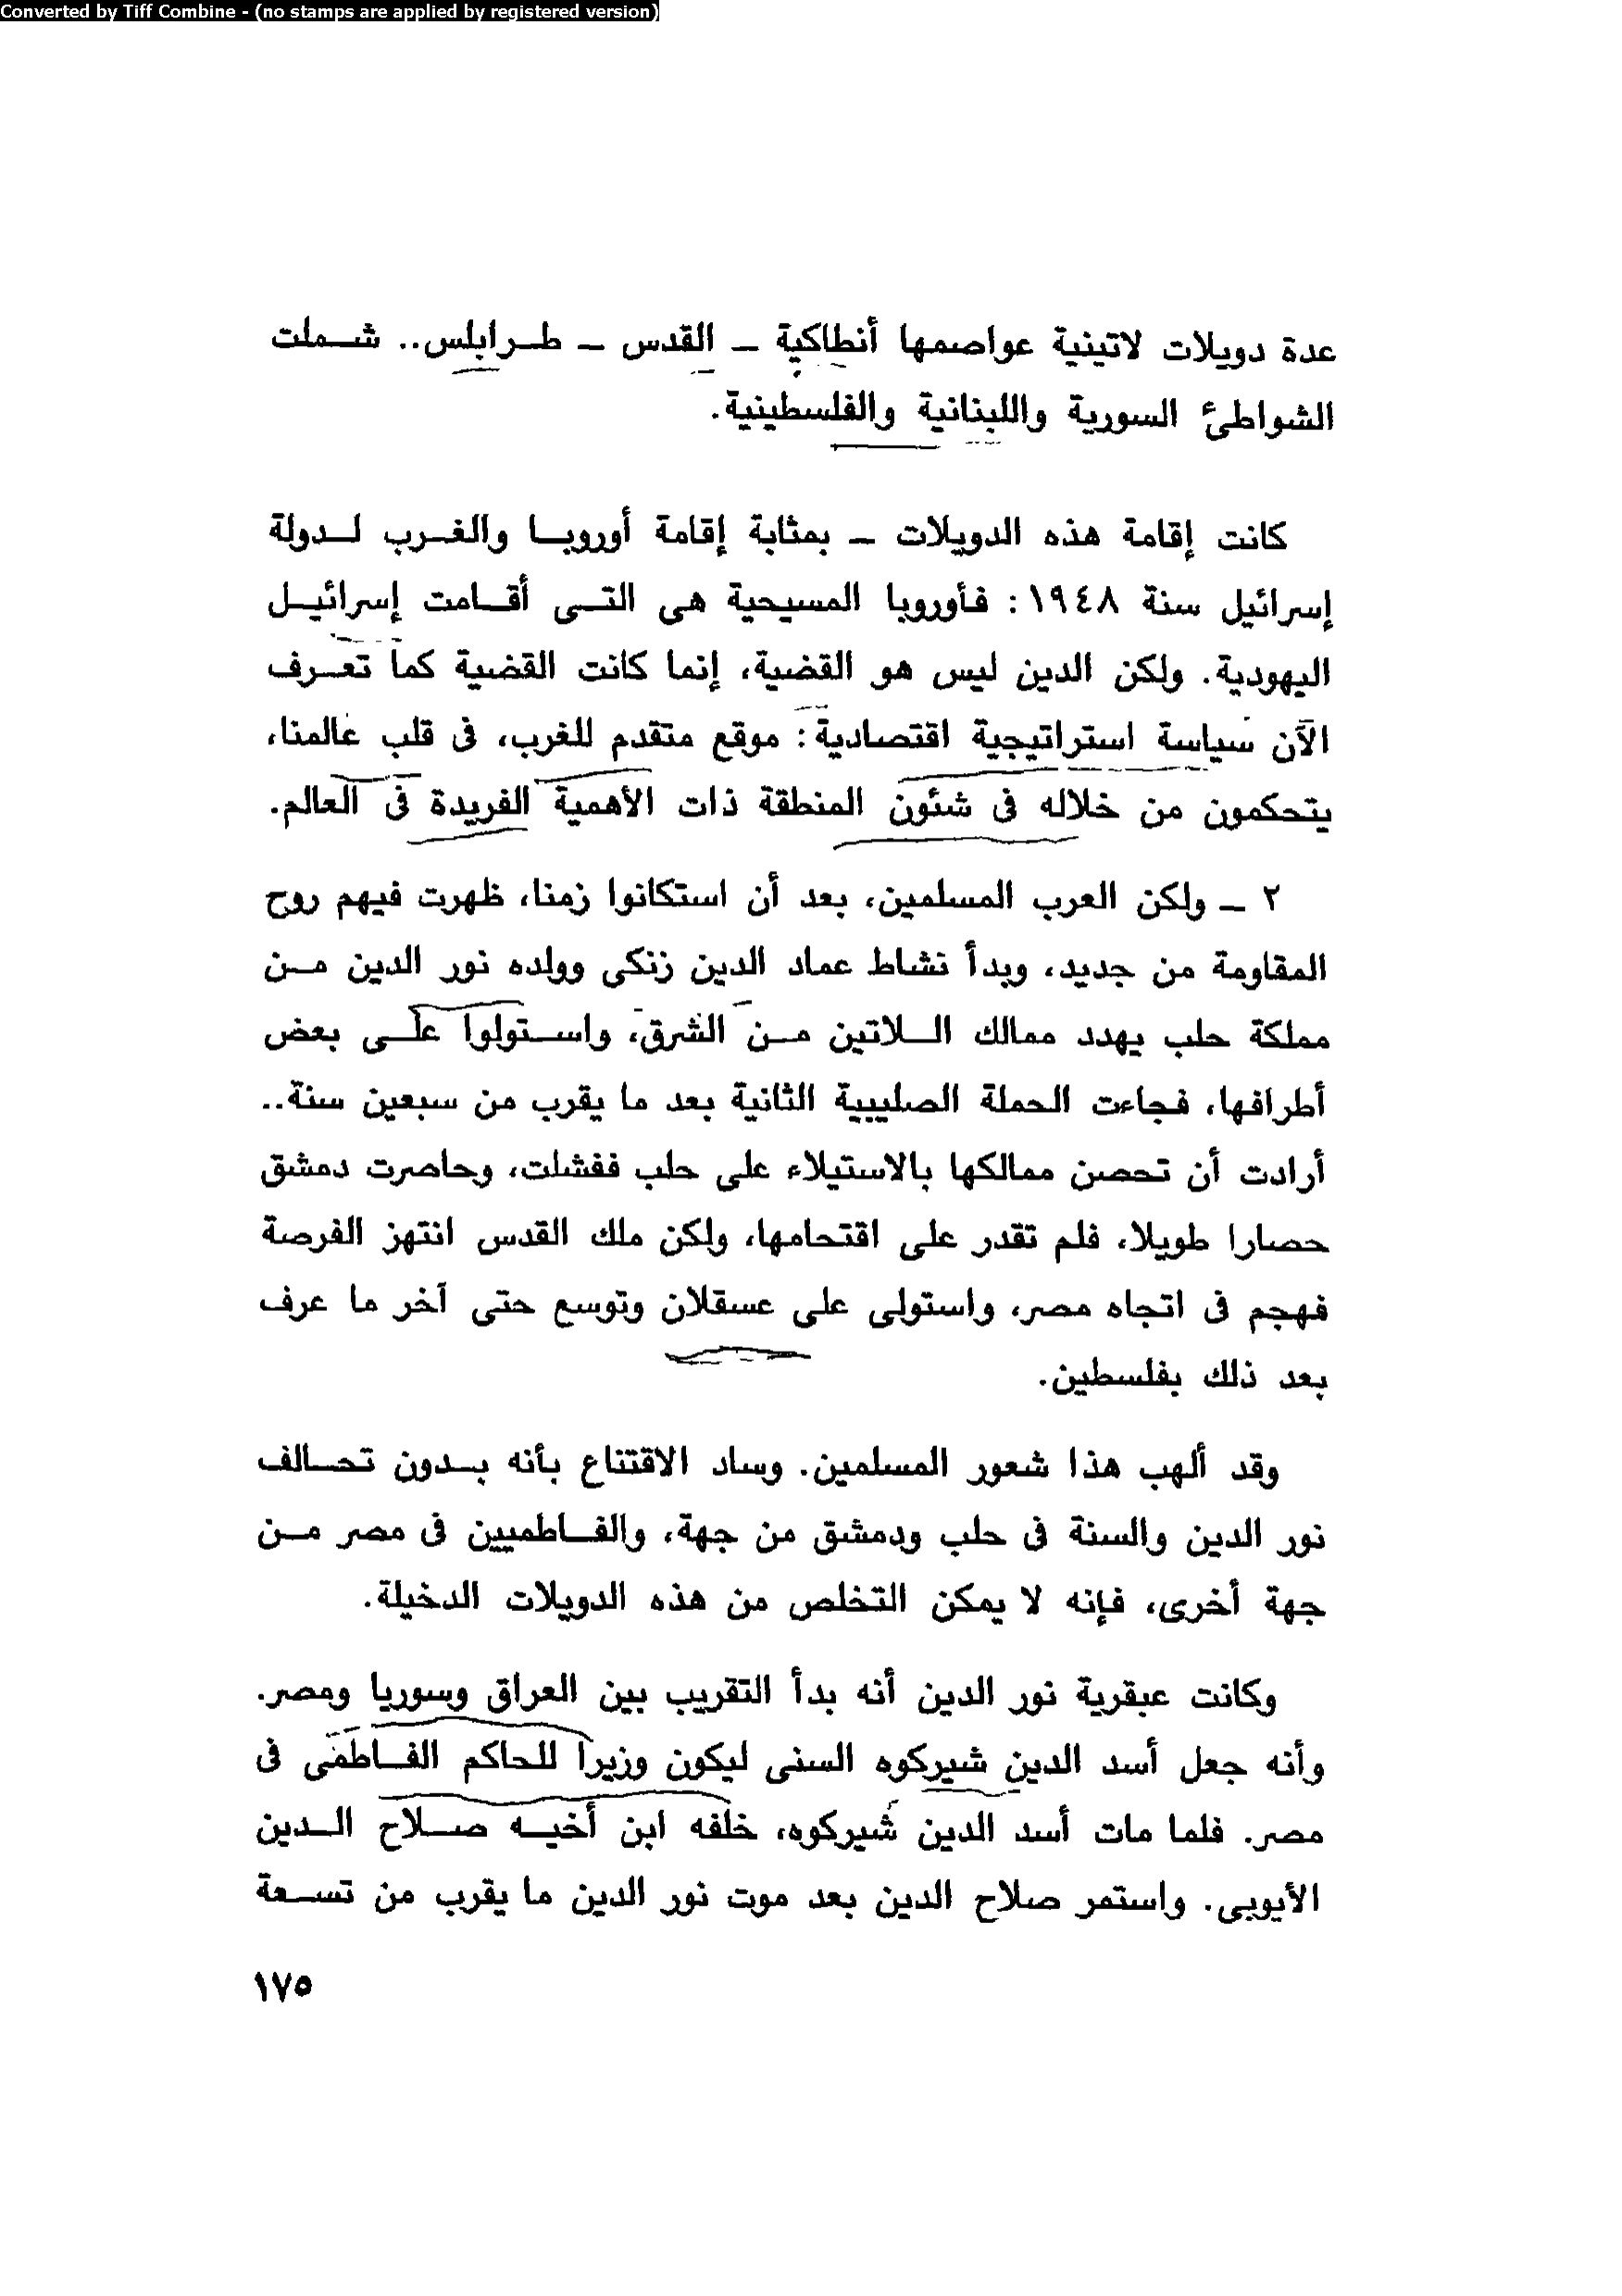 Converted by Tiff Combine - (no stamps are applied by registered version)
عدة دويلات لاتينية عواصمها أنطاكية – القدس – طرابلس.. شملت
الشواطئ السورية واللبنانية والفلسطينية.
كانت إقامة هذه الدويلات – بمثابة إقامة أوروبا والغرب لدولة
إسرائيل سنة ١٩٤٨: فأوروبا المسيحية هى التى أقامت إسرائيل
اليهودية. ولكن الدين ليس هو القضية، إنما كانت القضية كما تعرف
الآن سياسة استراتيجية اقتصادية: موقع متقدم للغرب، فى قلب عالمنا،
يتحكمون من خلاله فى شئون المنطقة ذات الأهمية الفريدة فى العالم.
٢ – ولكن العرب المسلمين، بعد أن استكانوا زمنا، ظهرت فيهم روح
المقاومة من جديد، وبدأ نشاط عماد الدين زنكى وولده نور الدين من
مملكة حلب يهدد ممالك اللاتين من الشرق، واستولوا على بعض
أطرافها، فجاءت الحملة الصليبية الثانية بعد ما يقرب من سبعين سنة..
أرادت أن تحصن ممالكها بالاستيلاء على حلب ففشلت، وحاصرت دمشق
حصارا طويلا، فلم تقدر على اقتحامها، ولكن ملك القدس انتهز الفرصة
فهجم فى اتجاه مصر، واستولى على عسقلان وتوسع حتى آخر ما عرف
بعد ذلك بفلسطين.
وقد ألهب هذا شعور المسلمين. وساد الاقتناع بأنه بدون تحالف
نور الدين والسنة فى حلب ودمشق من جهة، والفاطميين فى مصر من
جهة أخرى، فإنه لا يمكن التخلص من هذه الدويلات الدخيلة.
وكانت عبقرية نور الدين أنه بدأ التقريب بين العراق وسوريا ومصر.
وأنه جعل أسد الدين شيركوه السنى ليكون وزيرا للحاكم الفاطمى فى
مصر. فلما مات أسد الدين شيركوه، خلفه ابن أخيه صلاح الدين
الأيوبى. واستمر صلاح الدين بعد موت نور الدين ما يقرب من تسعة
١٧٥